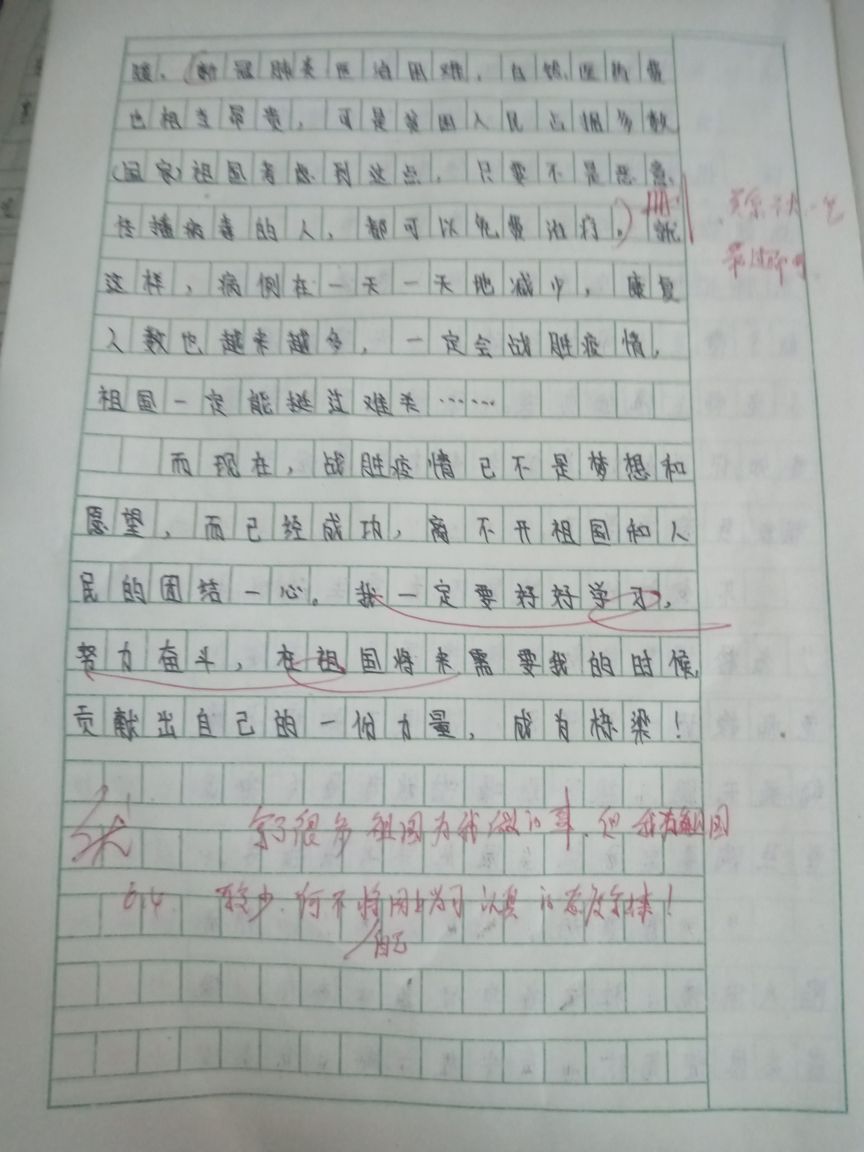 暖。新冠肺炎医治困难，自然医药费
也相当昂贵，可是贫困人民占佣多数
（国家）祖国考虑到这点，只要不是恶意
传播病毒的人，都可以免费治疗。就
这样，病例在一天一天地减少，康复
人数也越来越多，一定会战胜疫情，
祖国一定能挺过难关……
而现在，战胜疫情已不是梦想和
愿望，而已经成功，离不开祖国和人
民的团结一心。我一定要好好学习，
努力奋斗，在祖国将来需要我的时候，
贡献出自己的一份力量，成为栋梁！
优
写了很多祖国为我做的事，但我为祖国
6.4 较少，何不将自己认真的态度写续！